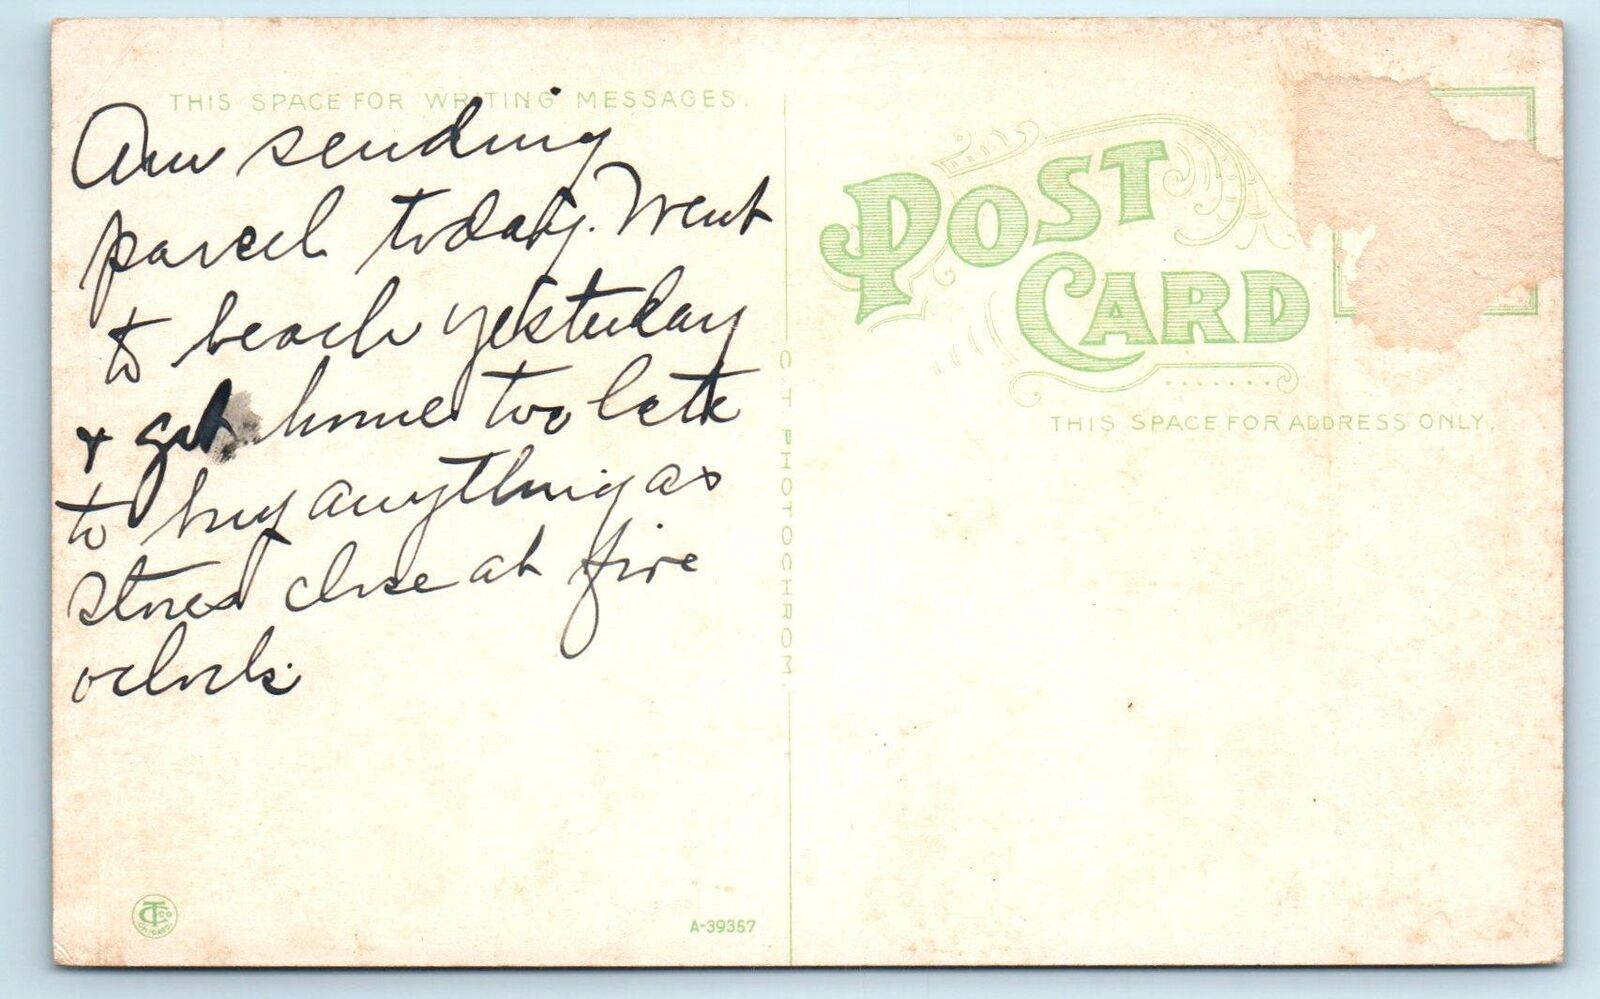 THIS SPACE FOR WRITING MESSAGES.
Am sending
parcel today. Went
to beach yesterday
+ got home too late
to buy anything as
stores close at five
oclock.
C. T. PHOTOCHROM
CT CO
CHICAGO
A-39357
POST
CARD
THIS SPACE FOR ADDRESS ONLY.